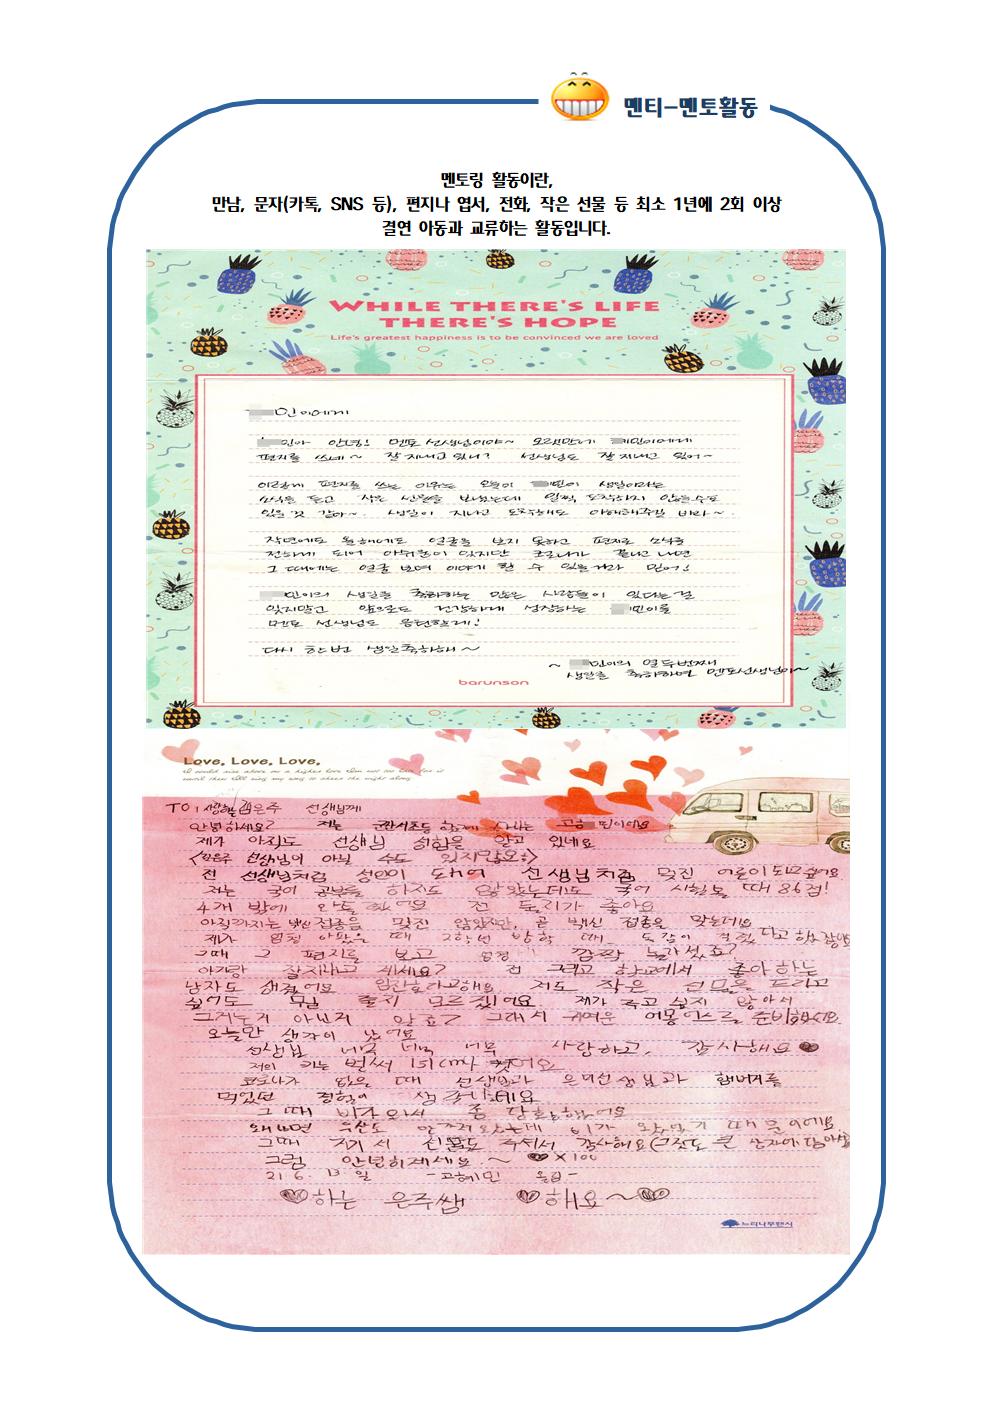 멘티-멘토활동
멘토링 활동이란,
만남, 문자(카톡, SNS 등), 편지나 엽서, 전화, 작은 선물 등 최소 1년에 2회 이상
결연 아동과 교류하는 활동입니다.
WHILE THERE'S LIFE
THERE'S HOPE
Life's greatest happiness is to be convinced we are loved
민이에게
민아 안녕! 멘토 선생님이야~ 오랜만에 민이에게
편지를 쓰네~ 잘 지내고 있니? 선생님도 잘 지내고 있어~
이렇게 편지를 쓰는 이유는 오늘이 민이 생일이라는
소식을 듣고 작은 선물을 보냈는데 일찍 도착하지 않을수도
있을 것 같아~ 생일이 지나고 도착해도 이해해주길 바라~
작년에도 올해에도 얼굴을 보지 못하고 편지로 소식을
전하게 되어 아쉬움이 있지만 코로나가 끝나고 나면
그 때에는 얼굴 보며 이야기 할 수 있을거라 믿어!
민이의 생일을 축하하는 많은 사람들이 있다는걸
잊지말고 앞으로도 건강하게 성장하는 민이를
멘토 선생님도 응원할게!
다시 한번 생일축하해~
~ 민이의 열두번째
생일을 축하하며 멘토선생님이~
barunson
Love, Love, Love,
TO: 은주 선생님께
안녕하세요? 저는 함께 사는 민이에요
제가 아직도 선생님 성함을 알고 있네요
선생님이 아닐 수도 있지만요
전 선생님처럼 성인이 되어 선생님처럼 멋진 어른이 되고 싶어요
저는 국어 공부를 하지도 않았는데도 국어 시험볼 때 86점!
4개 밖에 안틀렸어요 전 토끼가 좋아요
아직까지는 백신접종을 맞진 않았지만, 곧 백신 접종을 맞는데요
제가 엄청 아팠을 때 2학년 방학 때
그때 그 편지를 보고 깜짝 놀라셨죠?
아기랑 잘지내고 계세요? 전 그리고 학교에서 좋아하는
남자도 생겼어요 저도 작은 선물을 드리고
싶어도 뭘 줄지 모르겠어요 제가 주고 싶지 않아서
그러는게 아닌거 알죠? 그래서 귀여운 준비했어요
오늘만 생각이 났어요
선생님 너무 너무 너무 사랑하고, 감사해요
저의 키는 벌써 151cm나 컸어요
코로나가 없을 때 선생님과 은미선생님과 햄버거를
먹었던 경험이 생각나네요
그 때 비가 와서 좀 당황했어요
왜냐면 우산도 안가져왔는데 비가 왔었기 때문이에요
그때 저게 서 선물도 주셔서 감사해요(그것도 큰 상자에 담아서)
그럼 안녕히계세요~ X100
21. 6. 13. 일 -고혜민 올림-
하는 은주쌤 해요~
느티나무펜시